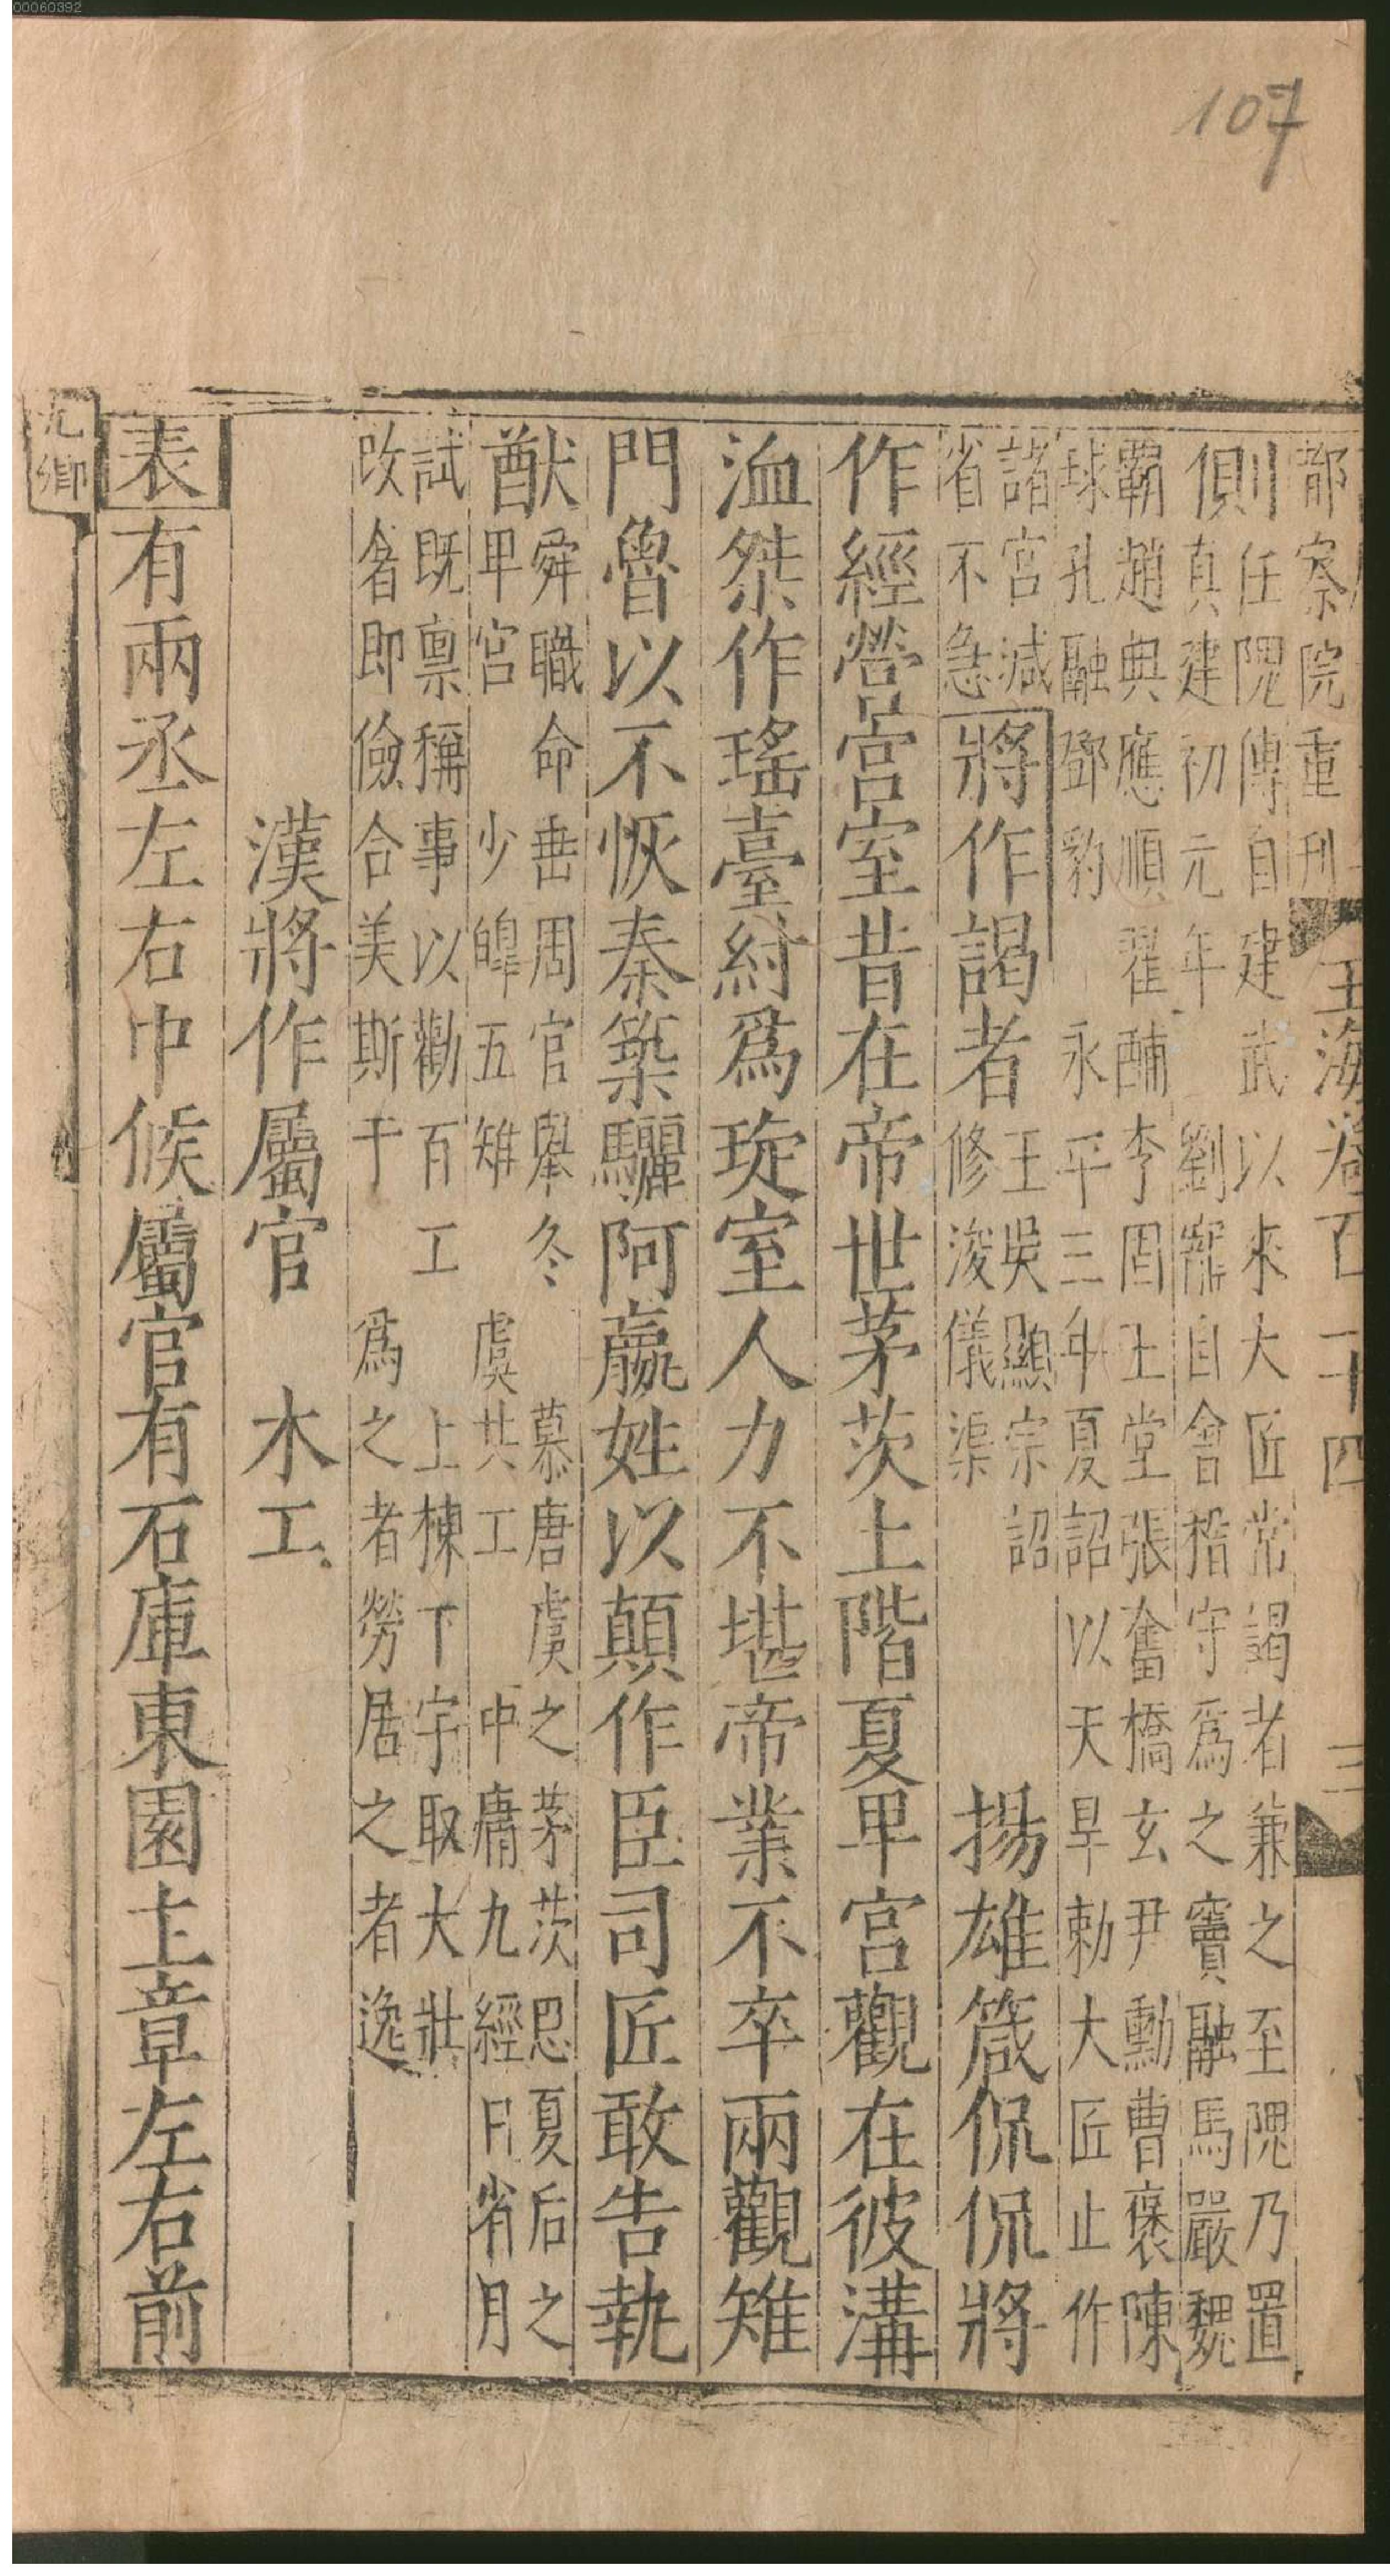 00060392
107
都察院重刊
玉海卷百二十四
三
側任隗傳自建武以來大匠常謁者兼之至隗乃置
真建初元年 劉寵自會稽守爲之竇融馬嚴魏
霸趙典應順翟酺李固王堂張奮橋玄尹勳曹褒陳
球孔融鄧豹 永平三年夏詔以天旱勅大匠止作
諸宮減
省不急
將作謁者
王吳顯宗詔
修浚儀渠
揚雄箴侃侃將
作經營宮室昔在帝世茅茨土階夏卑宮觀在彼溝
洫桀作瑤臺紂爲琁室人力不堪帝業不卒兩觀雉
門魯以不恢秦築驪阿嬴姓以顛作臣司匠敢告執
猷
舜職命垂周官舉冬 慕唐虞之茅茨思夏后之
卑宮 少皥五雉 虞共工 中庸九經日省月
試既禀稱事以勸百工 上棟下宇取大壯
改奢即儉合美斯于 爲之者勞居之者逸
漢將作屬官 木工
表有兩丞左右中候屬官有石庫東園主章左右前
九卿